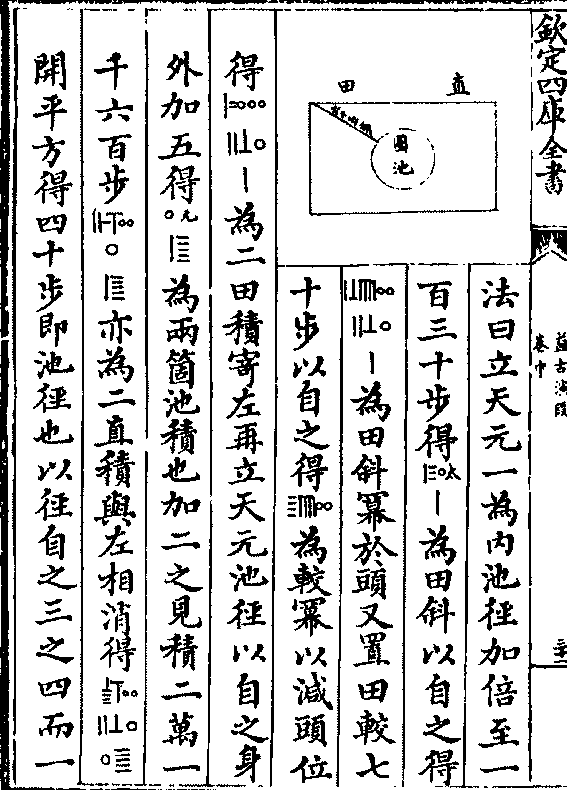 欽定四庫全書
益古演段
卷中
法曰立天元一為内池徑加倍至一
百三十步得太為田斜以自之得
為田斜冪於頭又置田較七
十步以自之得為較冪以減頭位
直田
圓池
得為二田積寄左再立天元池徑以自之身
外加五得元為兩箇池積也加二之見積二萬一
千六百步亦為二直積與左相消得
開平方得四十步即池徑也以徑自之三之四而一